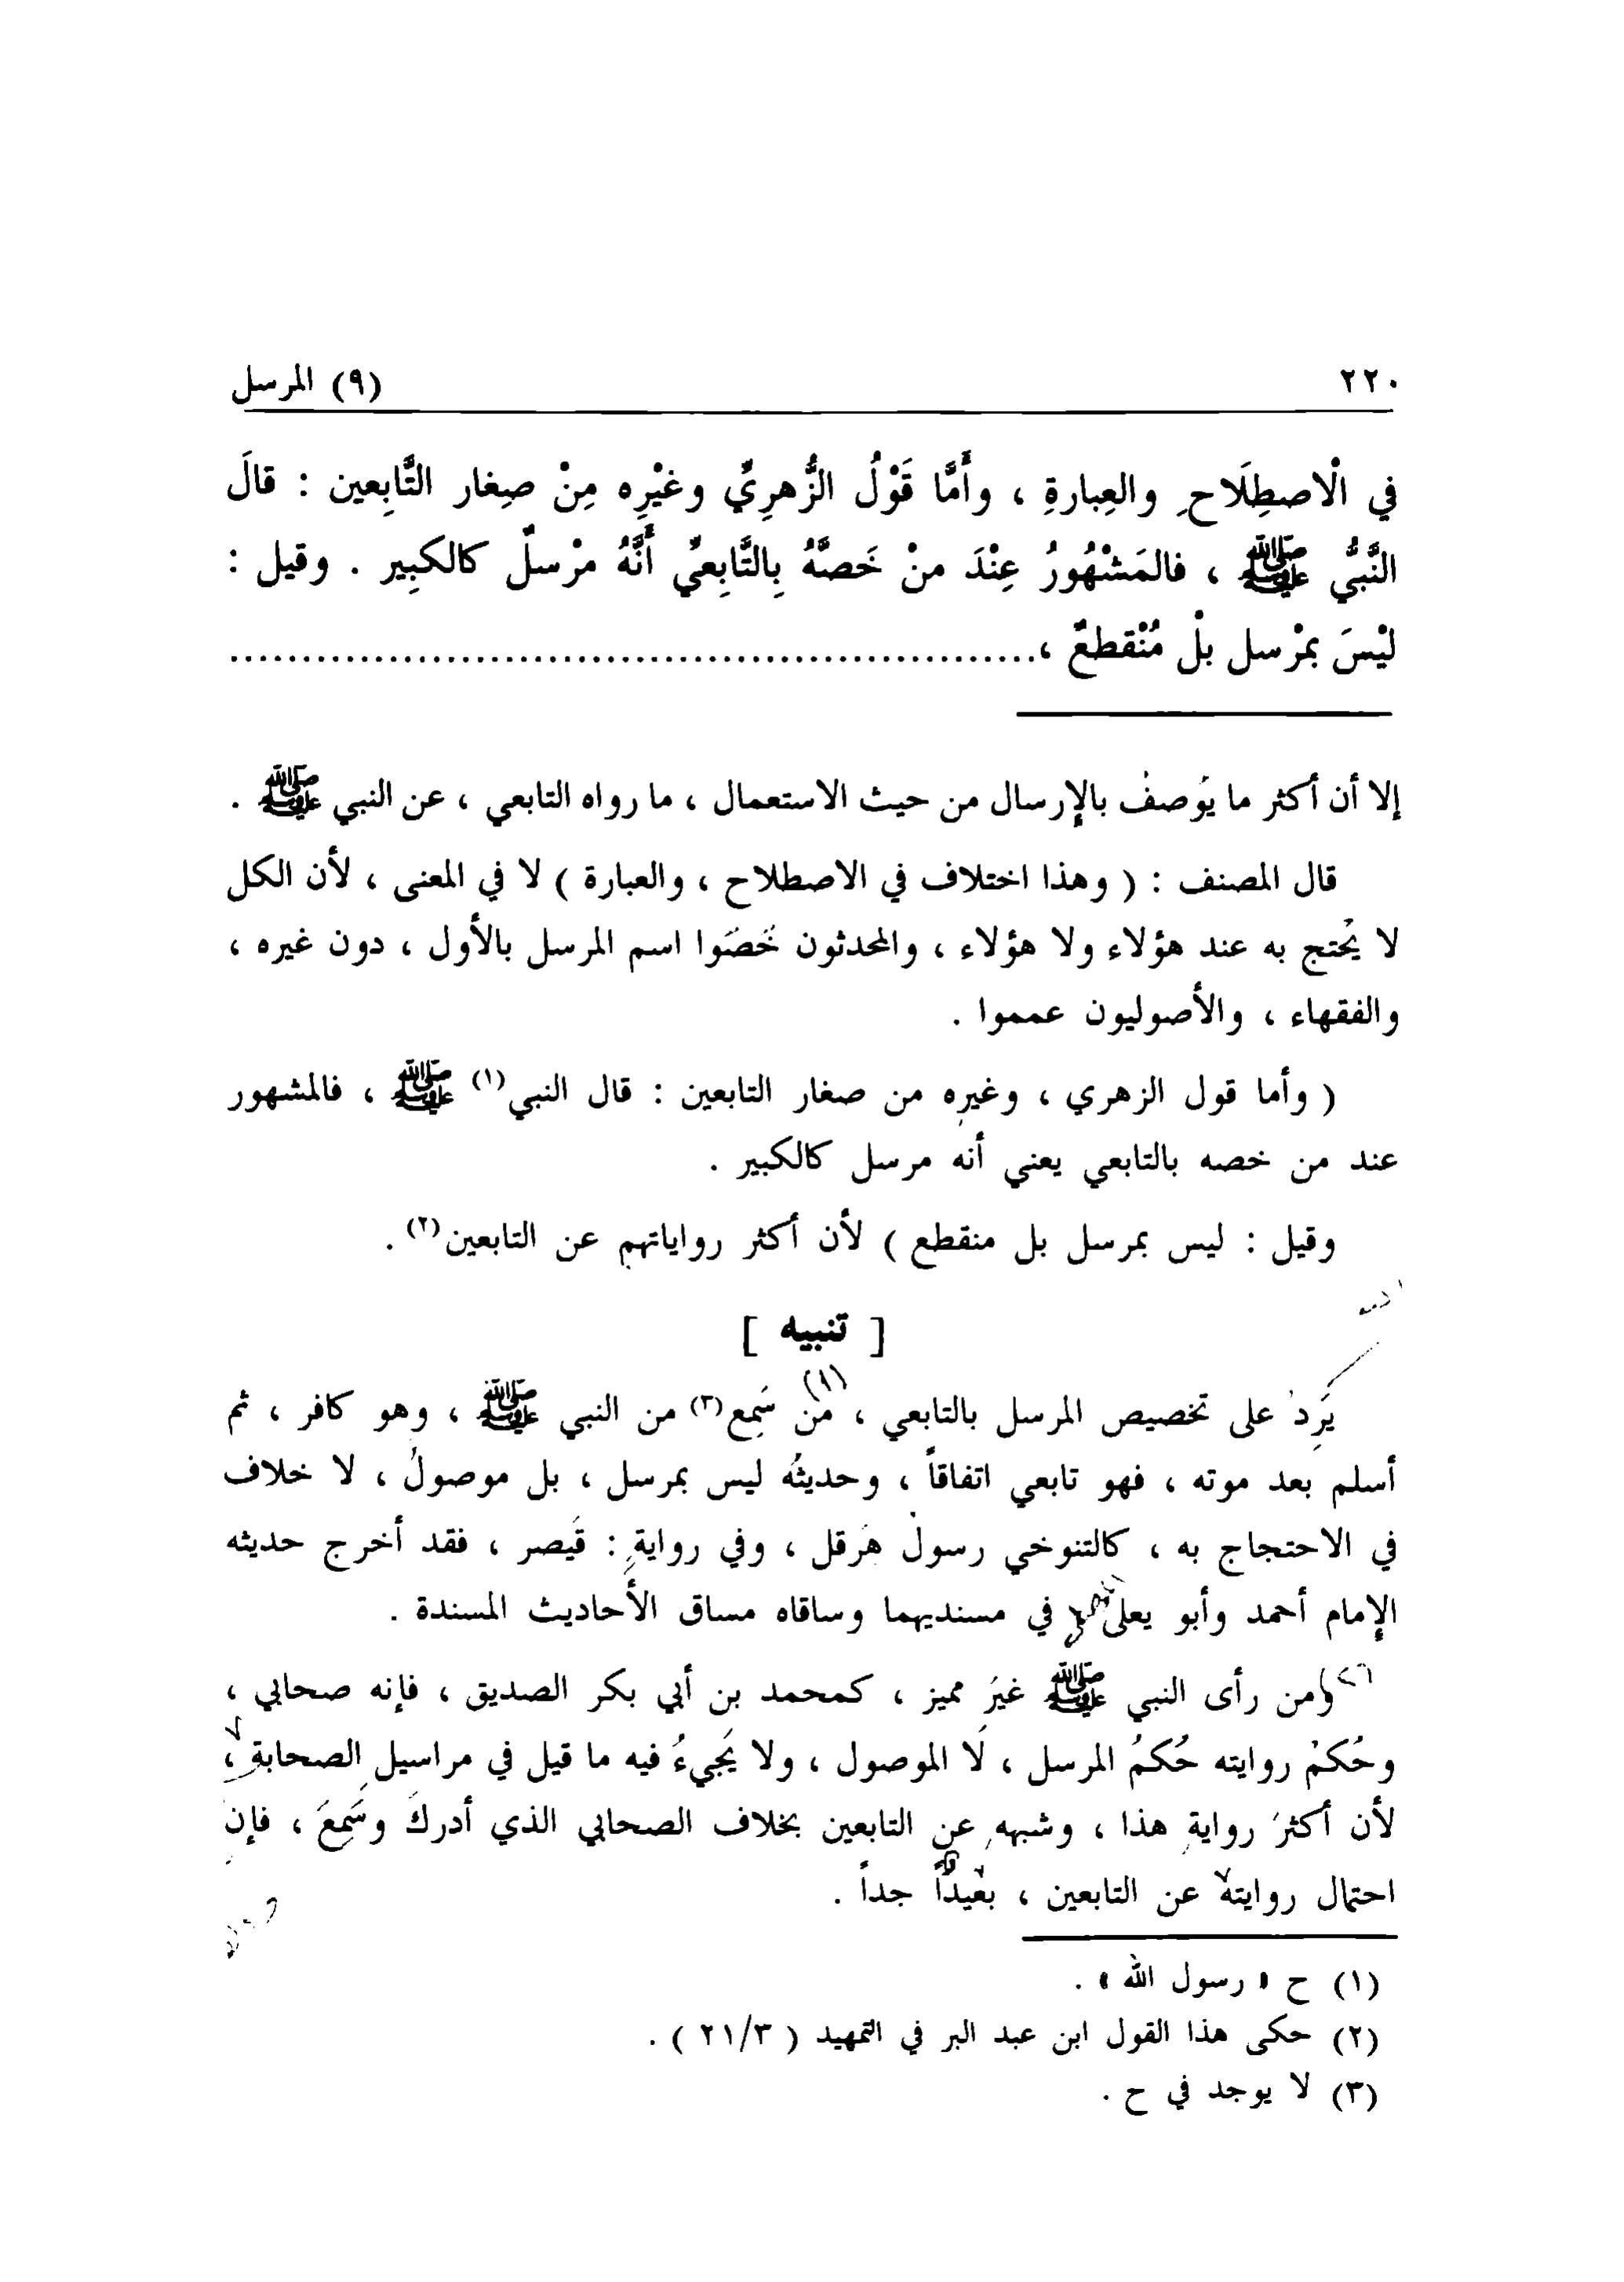 ٢٢٠
(٩) المرسل
في الْاصطِلَاحِ والعِبارةِ ، وأَمَّا قَوْلُ الزُّهرِيِّ وغيْرِه مِنْ صِغار التَّابِعين : قالَ
النَّبيُّ ﷺ ، فالمَشْهُورُ عِنْدَ منْ خَصَّهُ بِالتَّابِعيِّ أَنَّهُ مرْسلٌ كالكبِير . وقيل :
ليْسَ بمرْسل بلْ مُنْقطعٌ ،........................................................
إلا أن أكثر ما يُوصفُ بالإرسال من حيث الاستعمال ، ما رواه التابعي ، عن النبي ﷺ .
قال المصنف : ( وهذا اختلاف في الاصطلاح ، والعبارة ) لا في المعنى ، لأن الكل
لا يُحتج به عند هؤلاء ولا هؤلاء ، والمحدثون خَصُوا اسم المرسل بالأول ، دون غيره ،
والفقهاء ، والأصوليون عمموا .
( وأما قول الزهري ، وغيرِه من صغار التابعين : قال النبي(١) ﷺ ، فالمشهور
عند من خصه بالتابعي يعني أنه مرسل كالكبير .
وقيل : ليس بمرسل بل منقطع ) لأن أكثر رواياتهم عن التابعين(٢) .
[ تنبيه ]
يَرِد على تخصيص المرسل بالتابعي ، مَن سَمِع(٣) من النبي ﷺ ، وهو كافر ، ثم
أسلم بعد موته ، فهو تابعي اتفاقاً ، وحديثُه ليس بمرسل ، بل موصولٌ ، لا خلاف
في الاحتجاج به ، كالتنوخي رسول هرقل ، وفي روايةٍ : قَيصر ، فقد أخرج حديثه
الإمام أحمد وأبو يعلى في مسنديهما وساقاه مساق الأحاديث المسندة .
ومن رأى النبي ﷺ غيرَ مميز ، كمحمد بن أبي بكر الصديق ، فإنه صحابي ،
وحُكمُ روايته حُكمُ المرسل ، لَا الموصول ، ولا يَجيءُ فيه ما قيل في مراسيلِ الصحابةِ ،
لأن أكثرَ روايةِ هذا ، وشبهِه عن التابعين بخلاف الصحابي الذي أدركَ وسَمِعَ ، فإن
احتمال روايته عن التابعين ، بعيداً جداً .
(١) ح « رسول الله » .
(٢) حكى هذا القول ابن عبد البر في التمهيد ( ٢١/٣ ) .
(٣) لا يوجد في ح .